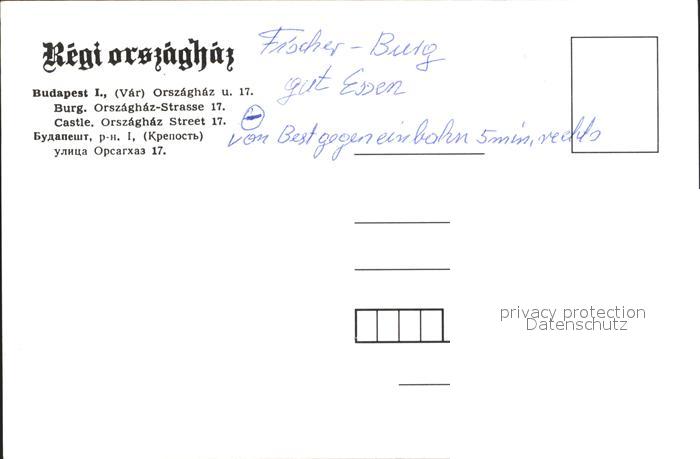 Régi országház
Budapest I., (Vár) Országház u. 17.
Burg. Országház-Strasse 17.
Castle. Országház Street 17.
Будапешт, р-н. I, (Крепость)
улица Орсагхаз 17.
Fischer-Burg
gut Essen
von gegen einbahn 5 min, rechts
privacy protection
Datenschutz